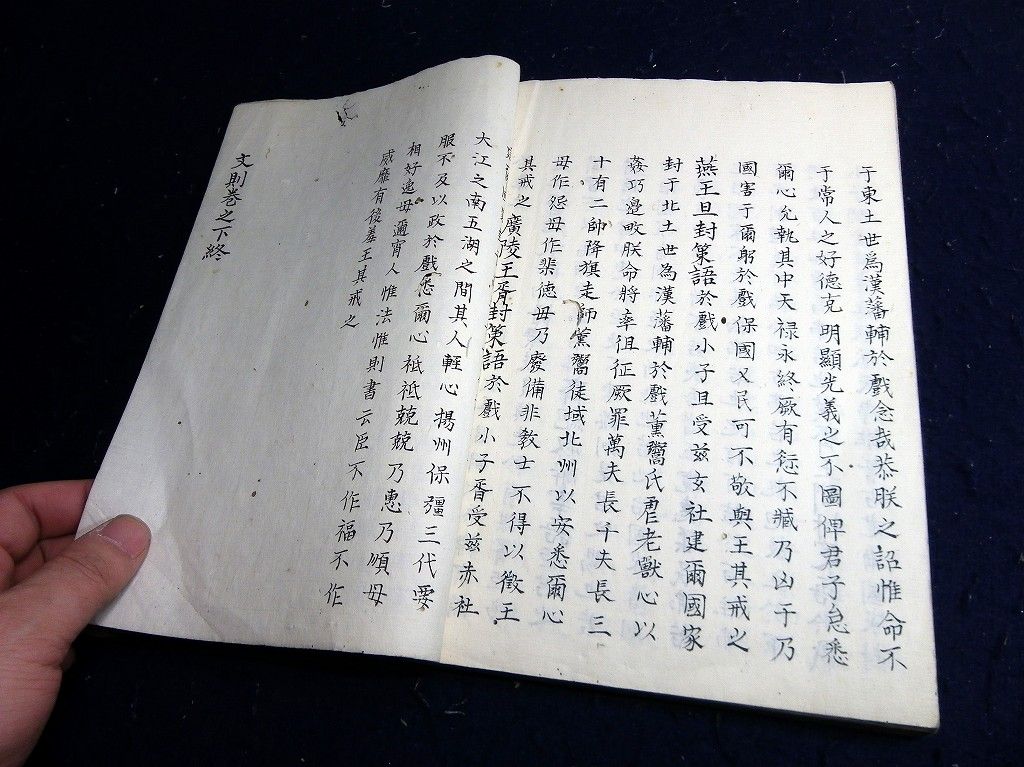 于東土世爲漢藩輔於戲念哉恭朕之詔惟命不
于常人之好德克明顯光義之不圖俾君子怠悉
爾心允執其中天禄永終厥有愆不臧乃凶于乃
國害于爾躬於戲保國乂民可不敬與王其戒之
燕王旦封策語於戲小子旦受兹玄社建爾國家
封于北土世為漢藩輔於戲薰鬻氏虐老獸心以
姦巧邊甿朕命將率徂征厥罪萬夫長千夫長三
十有二帥降旗走師薰鬻徒域北州以安悉爾心
毋作怨毋作棐德毋乃廢備非教士不得以徵王
其戒之廣陵王胥封策語於戲小子胥受兹赤社
大江之南五湖之間其人輕心揚州保彊三代要
服不及以政於戲悉爾心祗祗兢兢乃惠乃順毋
桐好逸毋邇宵人惟法惟則書云臣不作福不作
威靡有後羞王其戒之
文則卷之下終